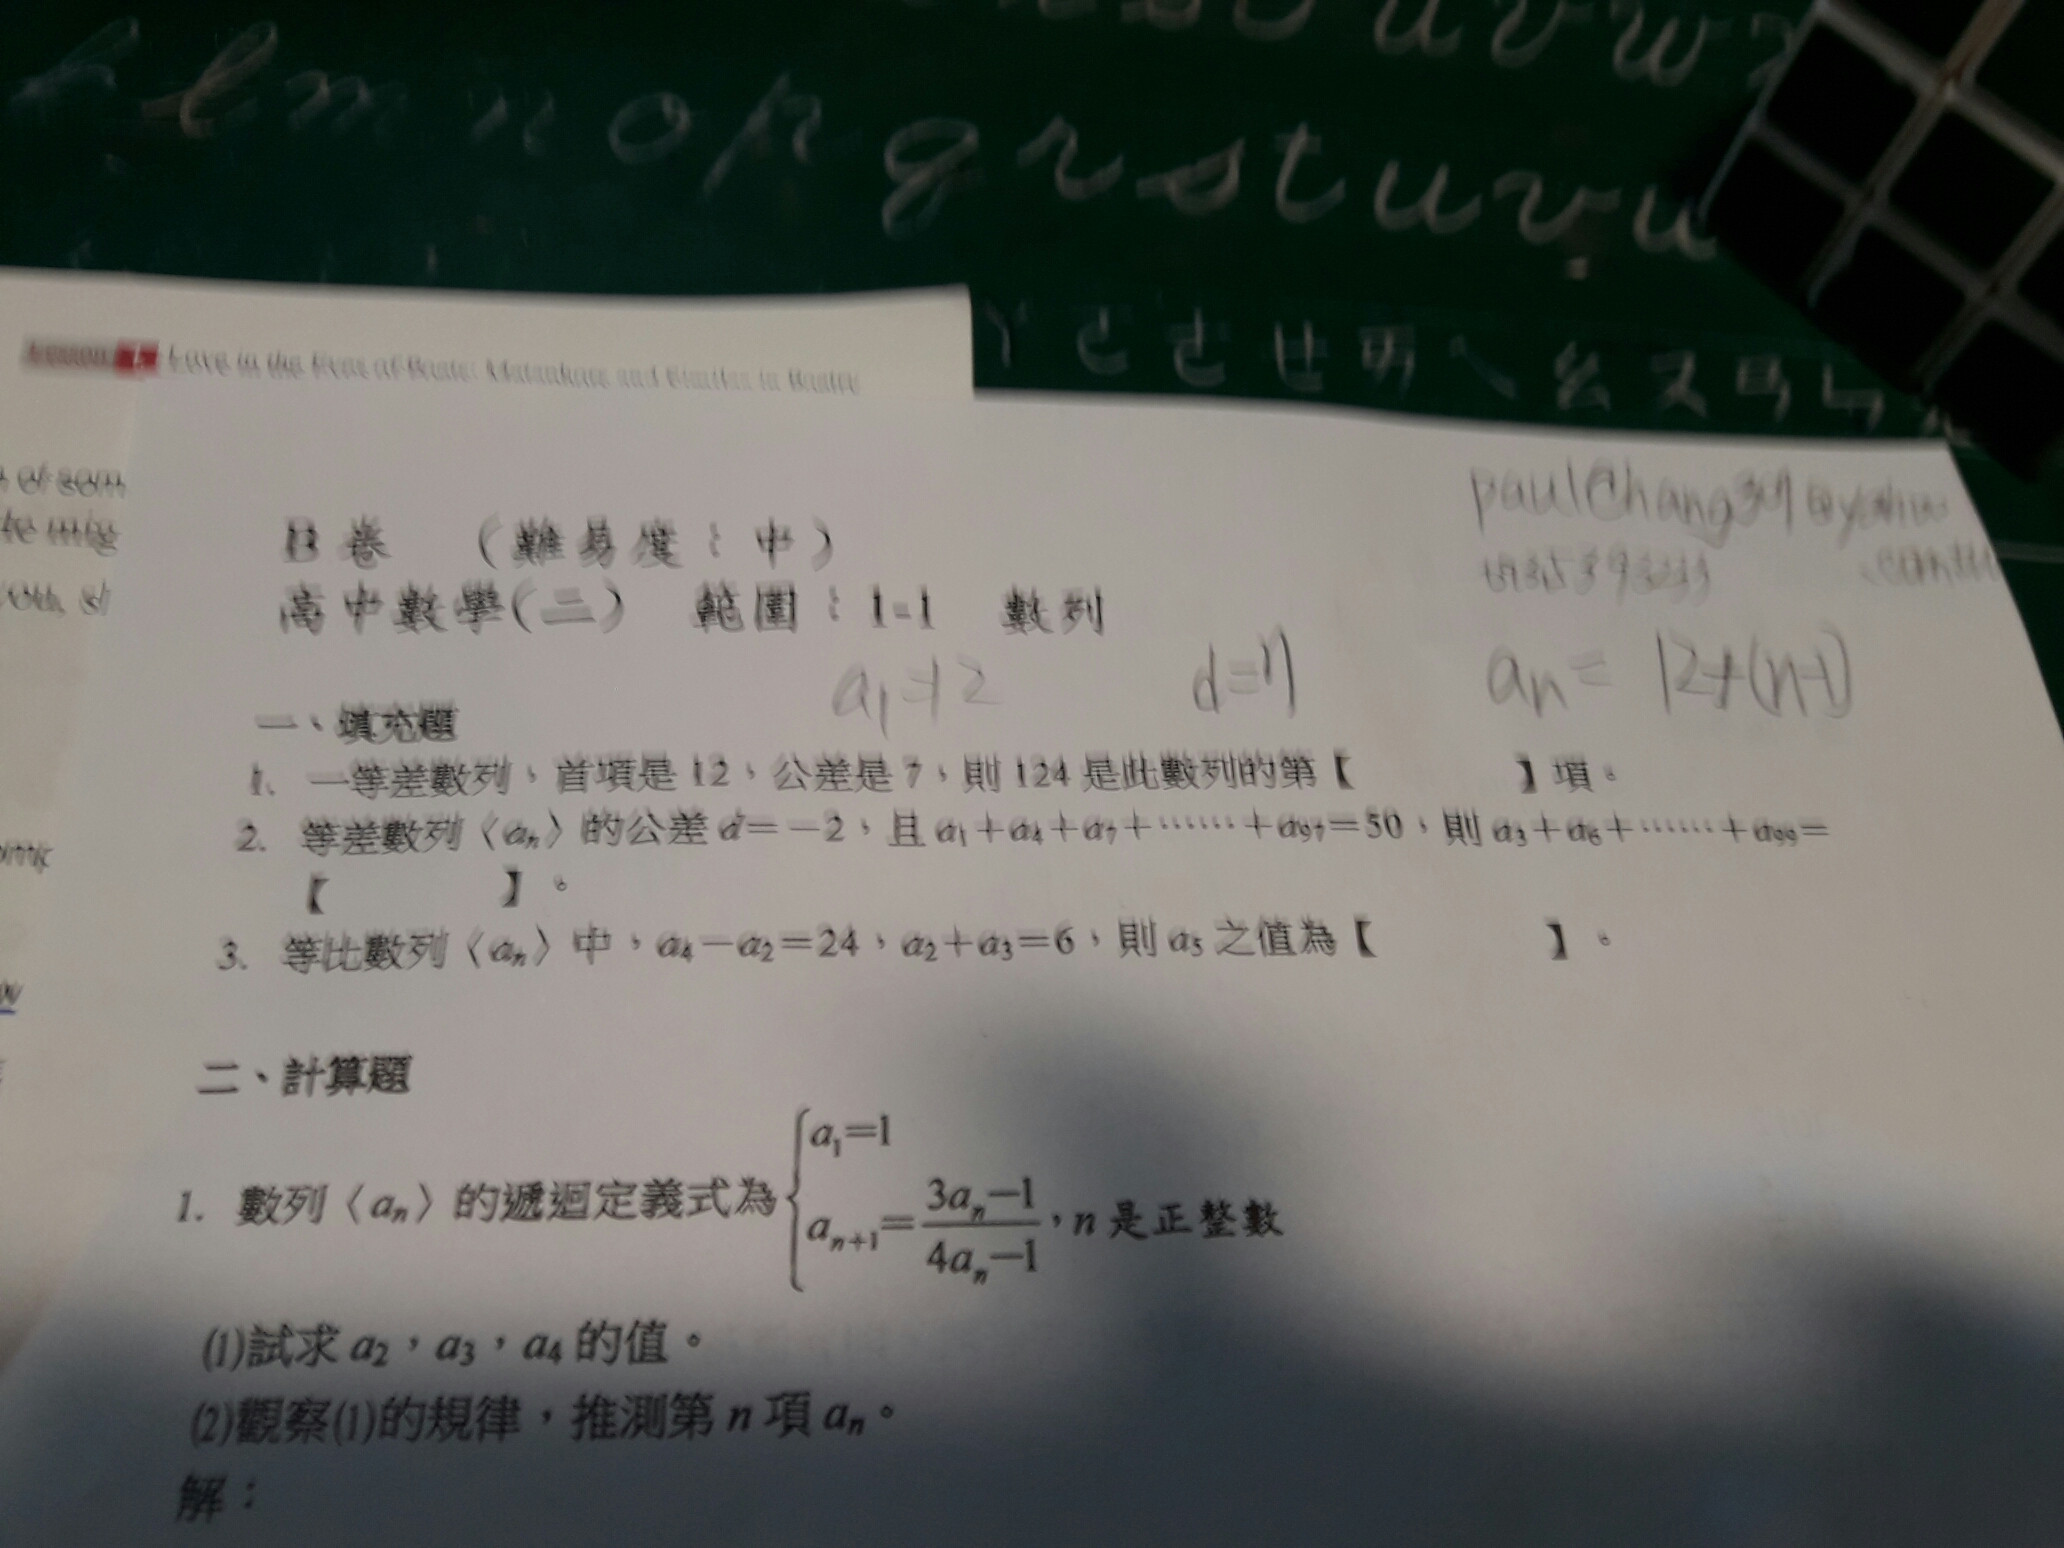 s t u v w
k l m n o p
q r s t u v w
ㄚ ㄛ ㄜ ㄝ ㄞ ㄟ ㄠ ㄡ ㄢ ㄣ
Lesson 1
of som
B卷 (難易度：中)
高中數學(二) 範圍：1-1 數列
a₁=12 d=7 aₙ= 12+(n-1)
一、填充題
1. 一等差數列，首項是12，公差是7，則124是此數列的第【 】項。
2. 等差數列〈aₙ〉的公差d=－2，且a₁+a₄+a₇+……+a₉₇=50，則a₃+a₆+……+a₉₉=
【 】。
3. 等比數列〈aₙ〉中，a₄－a₂=24，a₂+a₃=6，則a₅之值為【 】。
二、計算題
1. 數列〈aₙ〉的遞迴定義式為{a₁=1
aₙ₊₁=(3aₙ－1)/(4aₙ－1)，n是正整數
(1)試求a₂，a₃，a₄的值。
(2)觀察(1)的規律，推測第n項aₙ。
解：